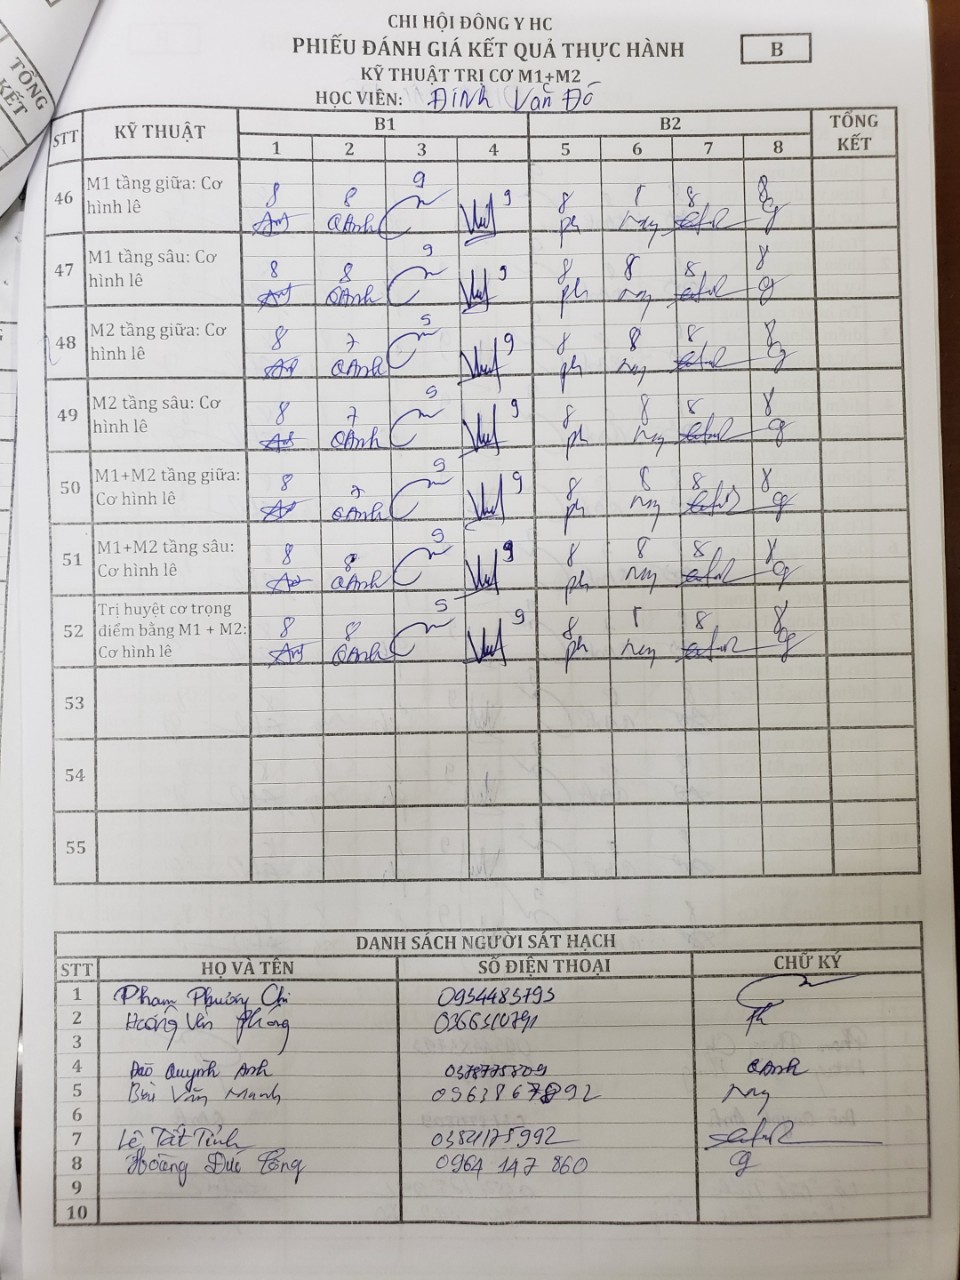 TỔNG
KẾT
CHI HỘI ĐÔNG Y HC
PHIẾU ĐÁNH GIÁ KẾT QUẢ THỰC HÀNH
B
KỸ THUẬT TRỊ CƠ M1+M2
HỌC VIÊN: Đinh Văn Đố
STT KỸ THUẬT B1 B2 TỔNG KẾT
1 2 3 4 5 6 7 8
46 M1 tầng giữa: Cơ hình lê 8 8 9 9 8 8 8 8
QAnh ph may
47 M1 tầng sâu: Cơ hình lê 8 8 9 9 8 8 8 8
QAnh ph may
48 M2 tầng giữa: Cơ hình lê 8 7 9 9 8 8 8 8
QAnh ph may
49 M2 tầng sâu: Cơ hình lê 8 7 9 9 8 8 8 8
QAnh ph may
50 M1+M2 tầng giữa: Cơ hình lê 8 7 9 9 8 8 8 8
QAnh ph may
51 M1+M2 tầng sâu: Cơ hình lê 8 8 9 9 8 8 8 8
QAnh ph may
52 Trị huyệt cơ trọng điểm bằng M1 + M2: Cơ hình lê 8 8 9 9 8 8 8 8
QAnh ph may
53
54
55
DANH SÁCH NGƯỜI SÁT HẠCH
STT HỌ VÀ TÊN SỐ ĐIỆN THOẠI CHỮ KÝ
1 Phạm Phương Chi 0934483793
2 Hoàng Văn Phong 0366310791 Ph
3
4 Đào Quỳnh Anh 0378775809 QAnh
5 Bùi Văn Mạnh 0963867892 may
6
7 Lê Tất Tỉnh 0354175992
8 Hoàng Đức Công 0964 147 860
9
10